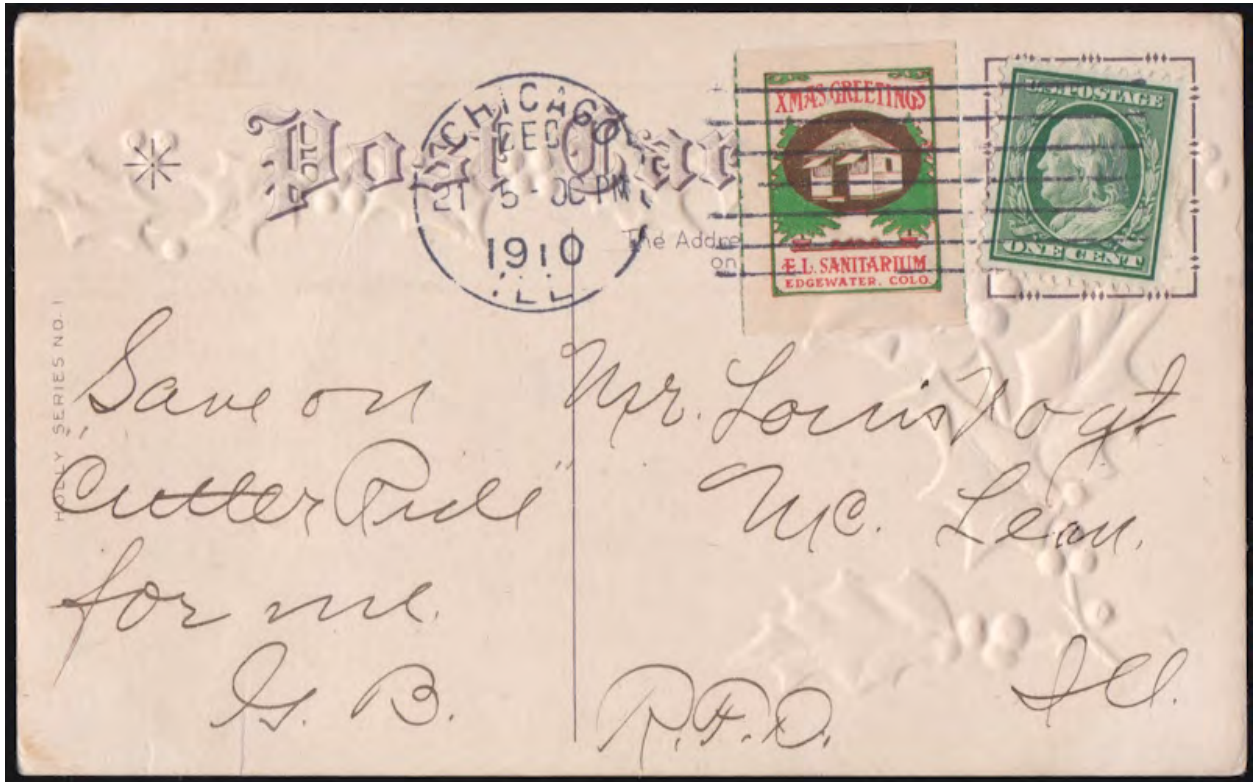 Post Car
CHICAGO
DEC
21 5-00 PM
1910
ILL
The Addre
on
XMAS GREETINGS
E.L. SANITARIUM
EDGEWATER, COLO.
U.S. POSTAGE
ONE CENT
HOLLY SERIES NO. 1
Save on
"Cutter Ride"
for me.
G. B.
Mr. Louis Vogt
Mc. Lean.
Ill.
R.F.D.